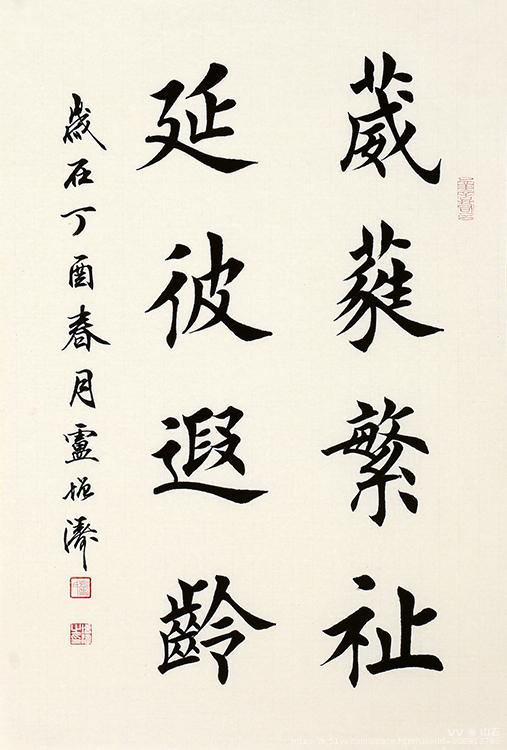 葳蕤繁祉
延彼遐齡
歲在丁酉春月盧